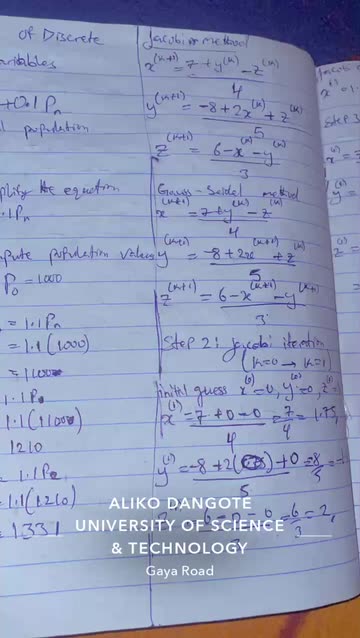 of Discrete
variables
+0.1 Pn
population
simplify the equation
.1Pn
population values
P0 = 1000
= 1.1 Pn
= 1.1 (1000)
= 1100
1.1 P
1.1 (1100)
1210
= 1.1 P
= 1.1 (1210)
= 1331
Jacobi method
x^(k+1) = 7 + y^(k) - z^(k)
4
y^(k+1) = -8 + 2x^(k) + z^(k)
5
z^(k+1) = 6 - x^(k) - y^(k)
3
Gauss - Seidel method
x^(k+1) = 7 + y^(k) - z^(k)
4
y^(k+1) = -8 + 2x^(k+1) + z^(k)
5
z^(k+1) = 6 - x^(k+1) - y^(k+1)
3
Step 2: Jacobi iteration
(k=0 → k=1)
initial guess x^(0)=0, y^(0)=0, z^(0)
x^(1) = 7 + 0 - 0 = 7 = 1.75,
4 4
y^(1) = -8 + 2( ) + 0 = -8
5 5
6 - 0 - 0 = 6 = 2,
3 3
Step 3
ALIKO DANGOTE
UNIVERSITY OF SCIENCE
& TECHNOLOGY
Gaya Road